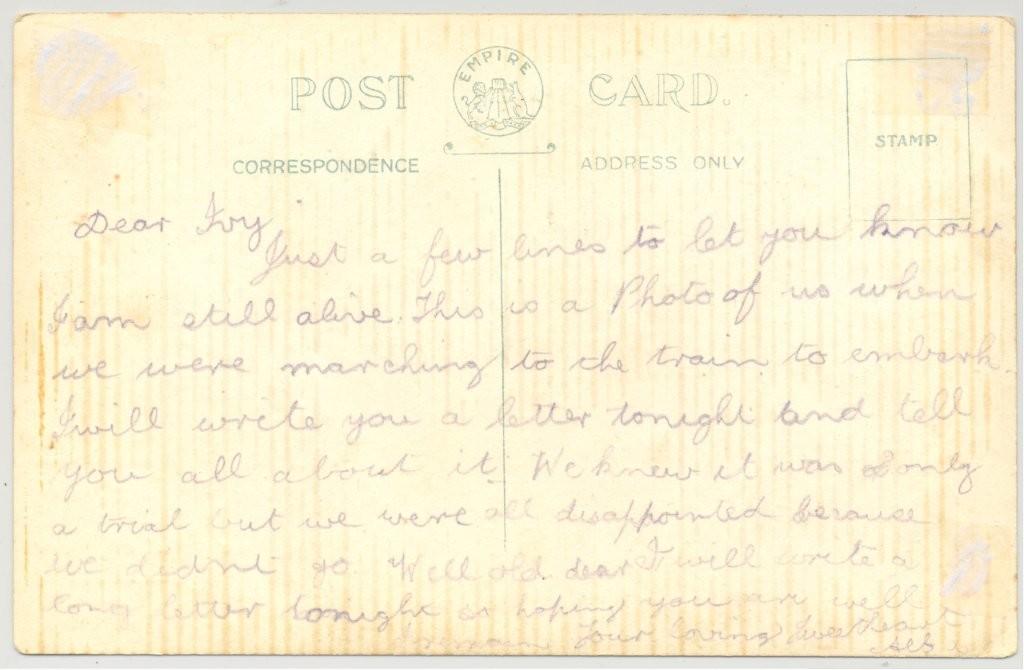 POST CARD.
EMPIRE
CORRESPONDENCE
ADDRESS ONLY
STAMP
Dear Ivy
Just a few lines to let you know
I am still alive. This is a Photo of us when
we were marching to the train to embark.
I will write you a letter tonight and tell
you all about it. We knew it was only
a trial but we were all disappointed because
we didnt go. Well old dear I will write a
long letter tonight so hoping you are well
I remain Your loving Sweetheart